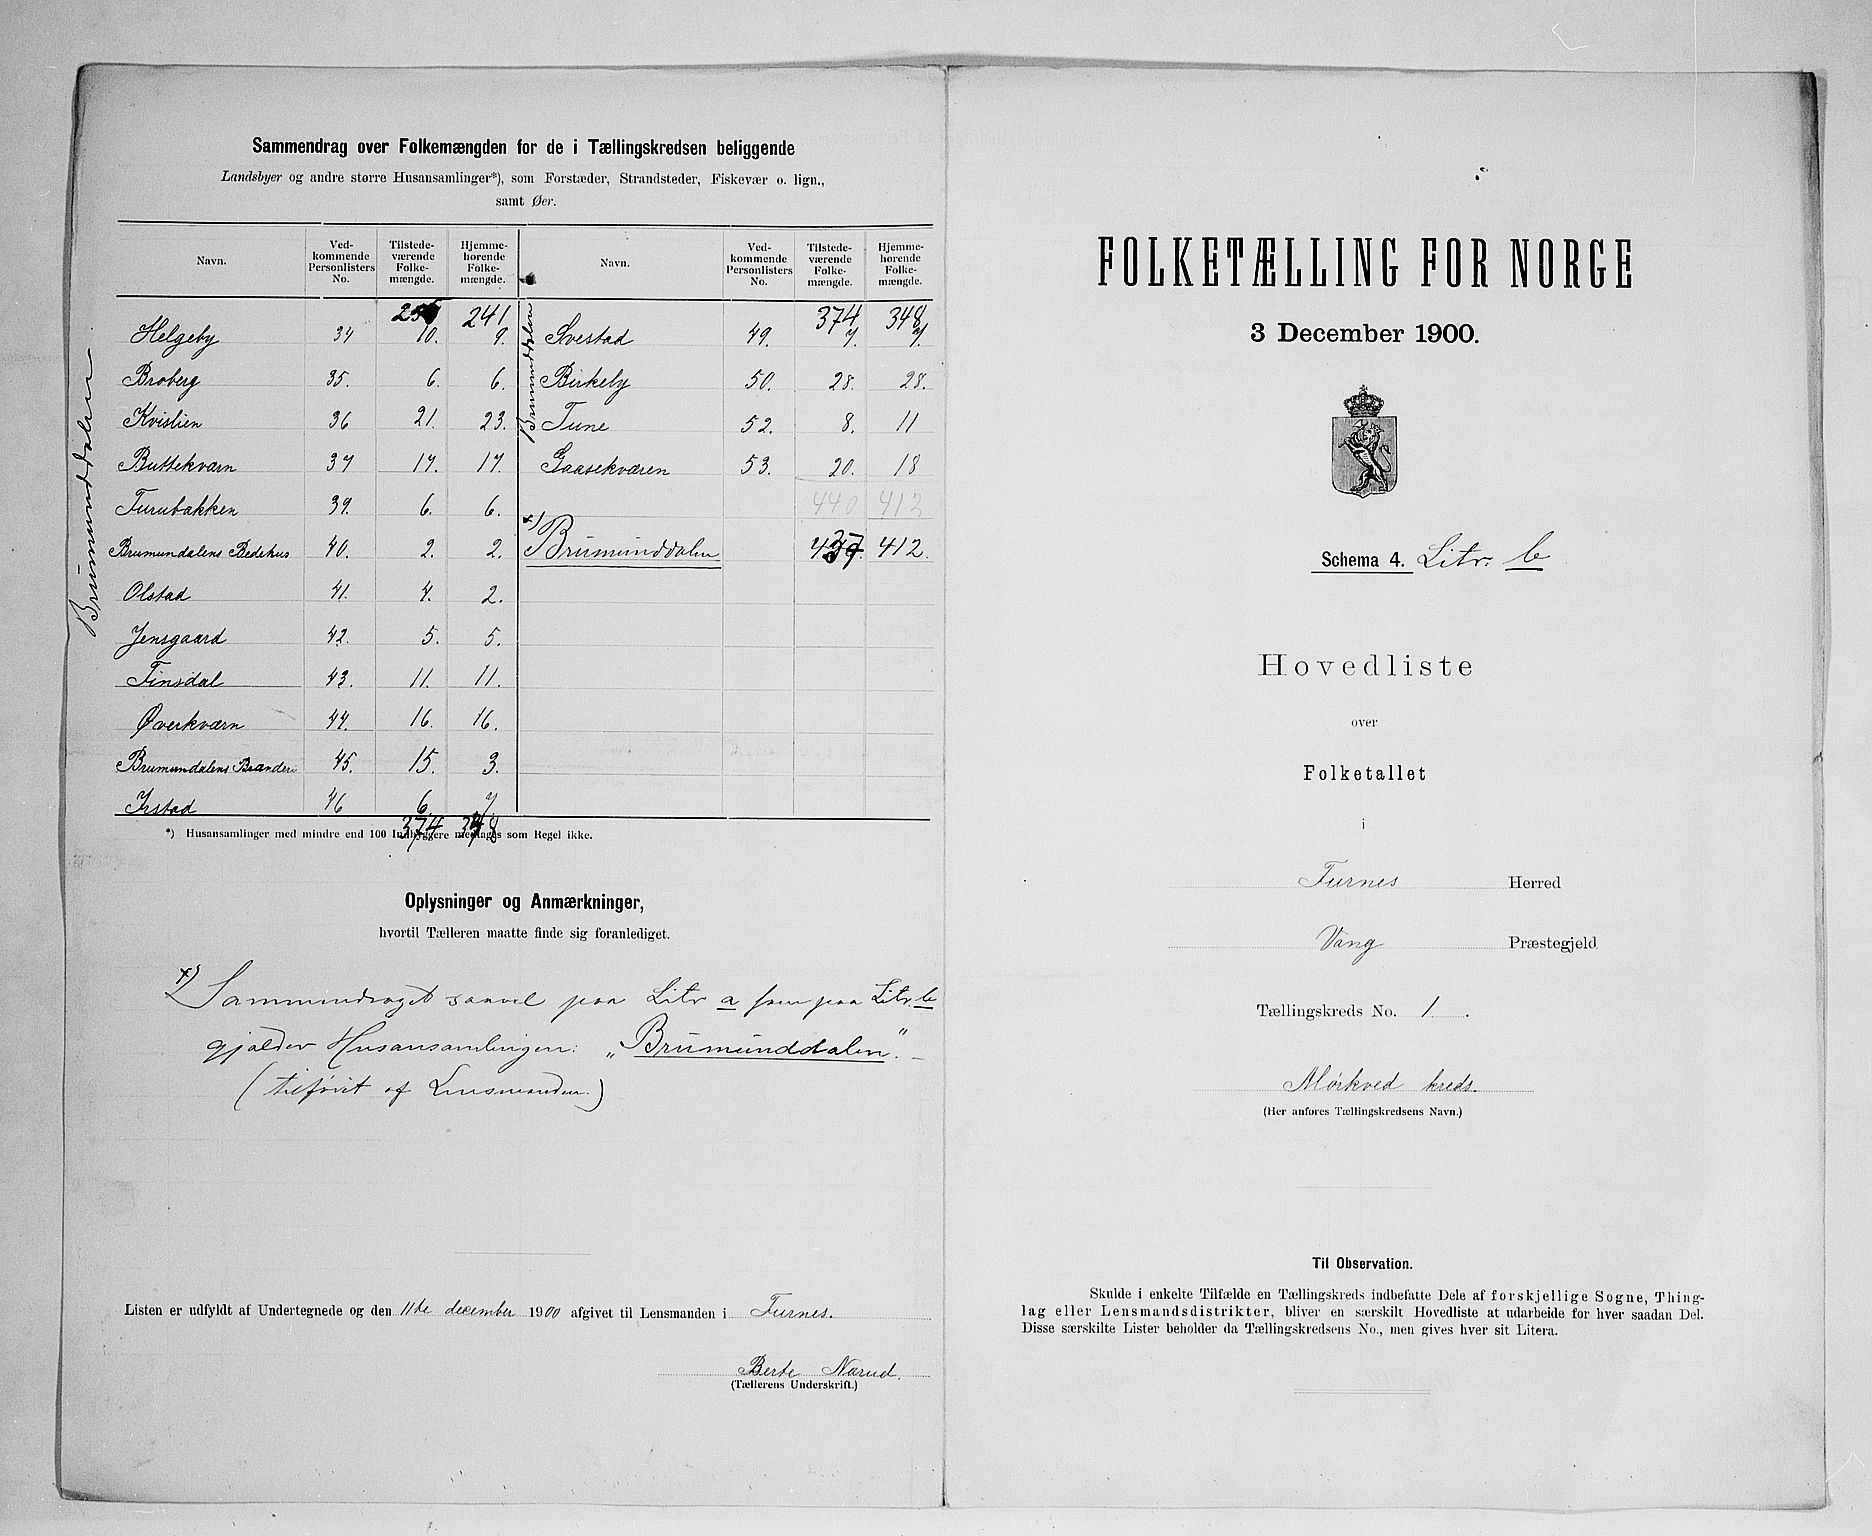 Sammendrag over Folkemængden for de i Tællingskredsen beliggende
Landsbyer og andre større Husansamlinger*), som Forstæder, Strandsteder, Fiskevær o. lign.,
samt Øer.
Navn. Ved-kommende Personlisters No. Tilstede-værende Folke-mængde. Hjemme-hørende Folke-mængde. Navn. Ved-kommende Personlisters No. Tilstede-værende Folke-mængde. Hjemme-hørende Folke-mængde.
Brumunddalen
241
Helgeby 34 10. 9.
Broberg 35. 6. 6.
Kvislien 36 21. 23.
Buttekværn 37 17. 17.
Furubakken 39. 6. 6.
Brumundalens Bedehus 40. 2. 2.
Olstad 41. 4. 2.
Jensgaard 42. 5. 5.
Finsdal 43. 11. 11.
Øverkværn 44. 16. 16.
Brumundalens Brænderi 45. 15. 3.
Irstad 46 6. 7.
374 348
Brumunddalen
374 348
Svestad 49. 7. 7.
Birkeby 50. 28. 28.
Tune 52. 8. 11
Gaasekværen 53. 20. 18
440 412
x) Brumunddalen 437. 412.
*) Husansamlinger med mindre end 100 Indbyggere medtages som Regel ikke.
Oplysninger og Anmærkninger,
hvortil Tælleren maatte finde sig foranlediget.
x) Sammendraget saavel paa Litr a som paa Litr. b
gjælder Husansamlingen: „Brumunddalen".
(tilføiet af Lensmanden.)
Listen er udfyldt af Undertegnede og den 11te december 1900 afgivet til Lensmanden i Furnes.
Berte Narud.
(Tællerens Underskrift.)
FOLKETÆLLING FOR NORGE
3 December 1900.
Schema 4. Litr. b
Hovedliste
over
Folketallet
i
Furnes Herred
Vang Præstegjeld
Tællingskreds No. 1.
Mørkved kreds.
(Her anføres Tællingskredsens Navn.)
Til Observation.
Skulde i enkelte Tilfælde en Tællingskreds indbefatte Dele af forskjellige Sogne, Thing-
lag eller Lensmandsdistrikter, bliver en særskilt Hovedliste at udarbeide for hver saadan Del.
Disse særskilte Lister beholder da Tællingskredsens No., men gives hver sit Litera.